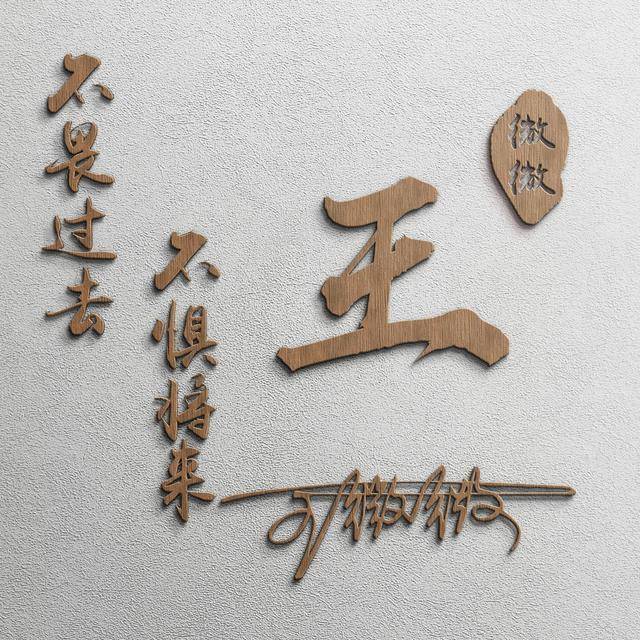 不畏过去
不惧将来
王
微微
王微微